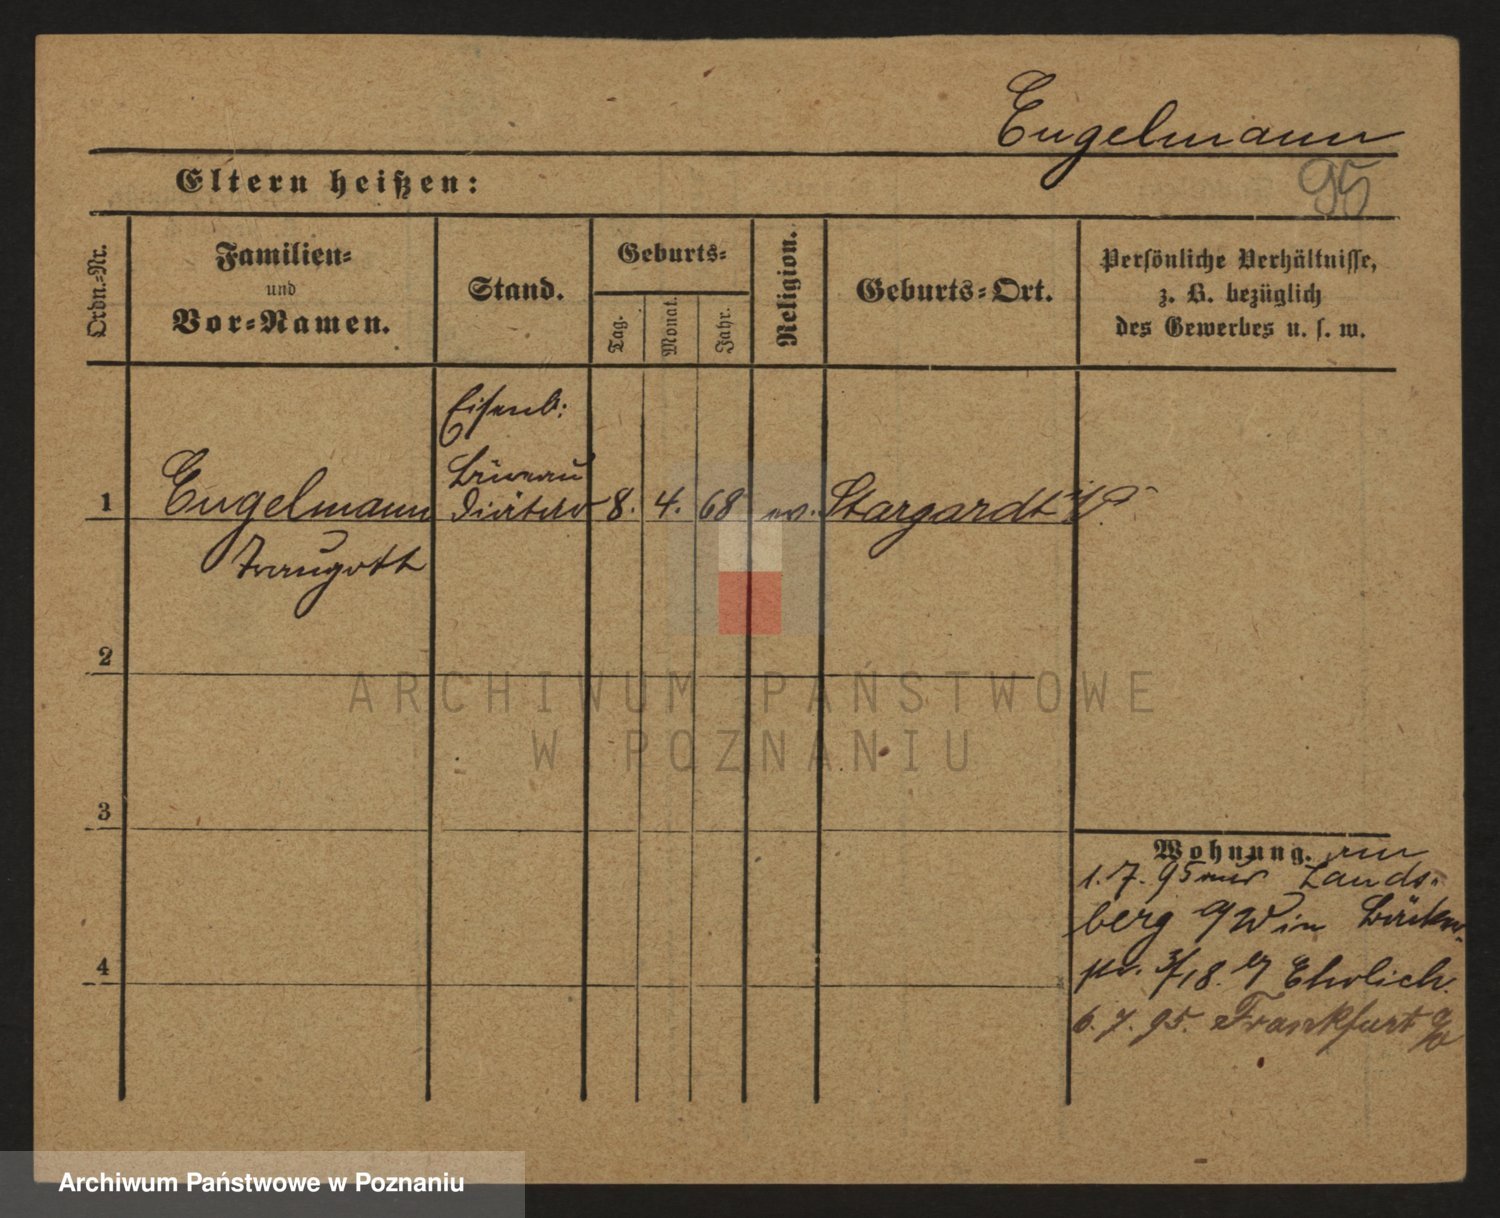 Engelmann
95
Eltern heißen:
Ordn.-Nr.
Familien-
und
Vor-Namen.
Stand.
Geburts-
Tag.
Monat.
Jahr.
Religion.
Geburts-Ort.
Persönliche Verhältnisse,
z. B. bezüglich
des Gewerbes u. s. w.
Eisenb:
Büreau
1 Engelmann Diätar 8. 4. 68 ev. Stargardt i/P.
Traugott
2
ARCHIWUM PAŃSTWOWE
W POZNANIU
3
Wohnung.
1. 7. 95 Lands-
berg a/W in
4
3/18. Ehrlich.
6. 7. 95. Frankfurt a/O
Archiwum Państwowe w Poznaniu